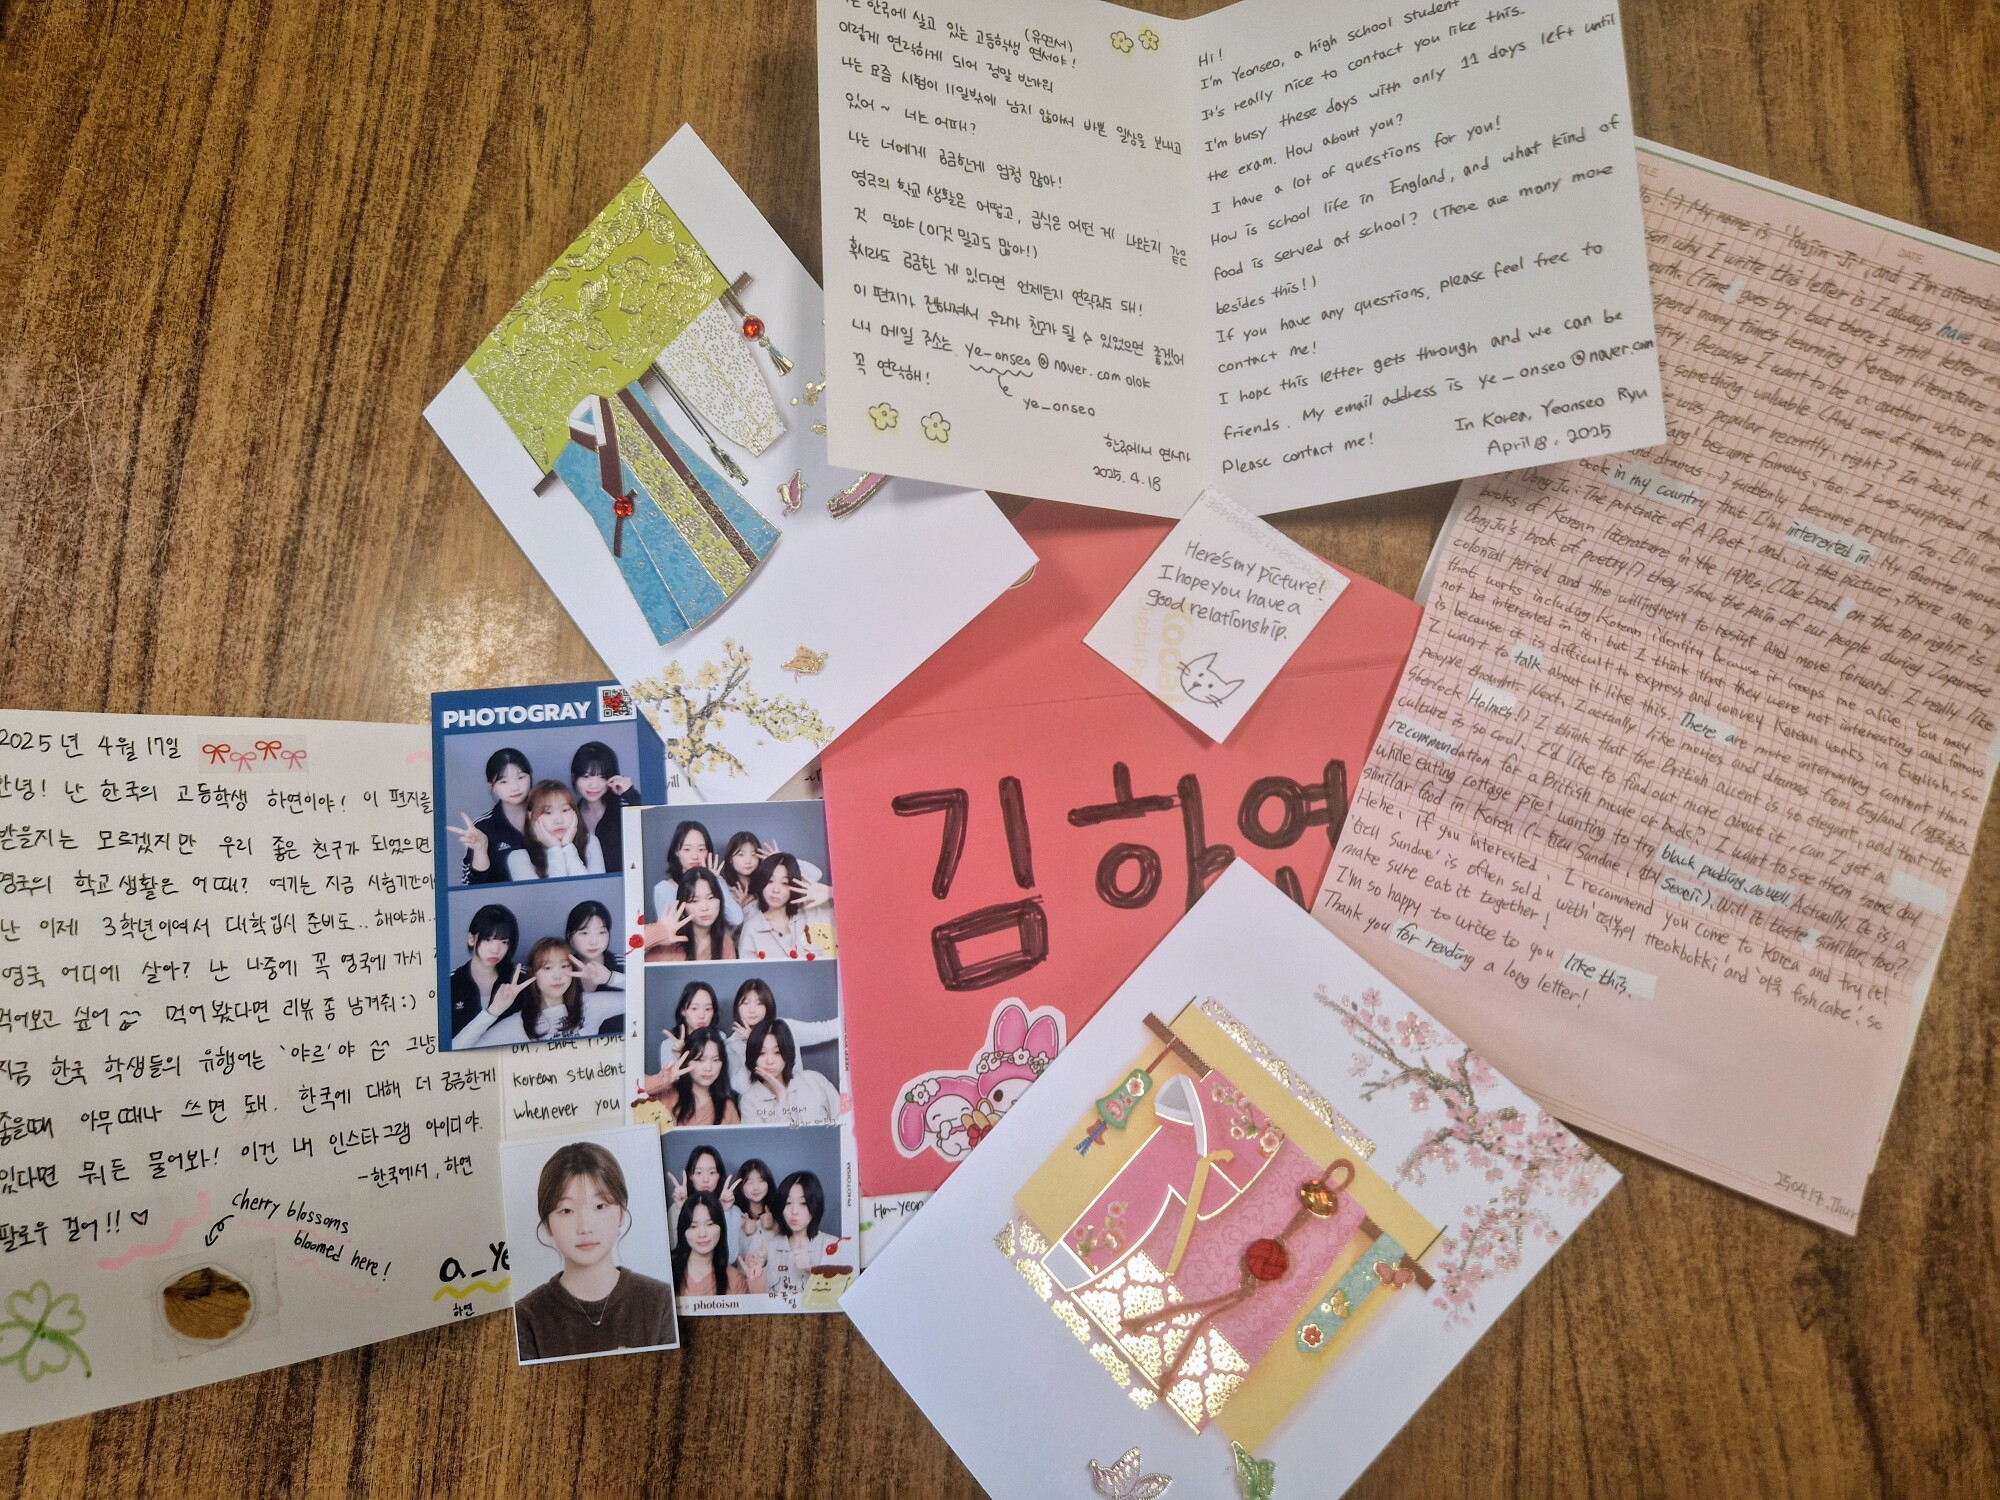 는 한국에 살고 있는 고등학생 (유연서) 연서야!
이렇게 연락하게 되어 정말 반가워
나는 요즘 시험이 11일밖에 남지 않아서 바쁜 일상을 보내고
있어 ~ 너는 어때?
나는 너에게 궁금한게 엄청 많아!
영국의 학교 생활은 어떻고, 급식은 어떤 게 나오는지 같은
것 말야 (이것 말고도 많아!)
혹시라도 궁금한 게 있다면 언제든지 연락해도 돼!
이 편지가 전해져서 우리가 친구가 될 수 있었으면 좋겠어
내 메일 주소는 ye_onseo@naver.com 이야
꼭 연락해!
ye_onseo
한국에서 연서가
2025.4.18
Hi!
I'm Yeonseo, a high school student
It's really nice to contact you like this.
I'm busy these days with only 11 days left until
the exam. How about you?
I have a lot of questions for you!
How is school life in England, and what kind of
food is served at school? (There are many more
besides this!)
If you have any questions, please feel free to
contact me!
I hope this letter gets through and we can be
friends. My email address is ye_onseo@naver.com
Please contact me!
In Korea, Yeonseo Ryu
April 18, 2025
Here's my picture!
I hope you have a
good relationship.
김하연
PHOTOGRAY
2025년 4월 17일
안녕! 난 한국의 고등학생 하연이야! 이 편지를
받을지는 모르겠지만 우리 좋은 친구가 되었으면
영국의 학교생활은 어때? 여기는 지금 시험기간이
난 이제 3학년이여서 대학입시 준비도.. 해야해..
영국 어디에 살아? 난 나중에 꼭 영국에 가서
먹어보고 싶어 먹어봤다면 리뷰 좀 남겨줘:)
지금 한국 학생들의 유행어는 '야르'야 그냥
좋을때 아무때나 쓰면 돼. 한국에 대해 더 궁금한게
있다면 뭐든 물어봐! 이건 내 인스타그램 아이디야.
-한국에서, 하연
팔로우 걸어!! ♡
cherry blossoms
bloomed here!
a_ye
하연
Korean student
whenever you
photoism
PHOTOISM
DATE
My name is 'Yoojin Ji', and I'm
why I write this letter is I always have
(Time goes by, but there's still letter
spend many times learning Korean literature
Because I want to be a author who
something valuable (And one of them will
was popular recently, right? In 2024, A
became famous, too. I was surprised
and dramas...) suddenly became popular. So, I'll
book in my country that I'm interested in. My favorite movie
DongJu: The Portrait of A Poet', and, in the picture, there are my
books of Korean literature in the 1970s. (The book on the top right is
DongJu's book of poetry!) they show the pain of our people during Japanese
colonial period and the willingness to resist and move forward. I really like
that works including Korean identity because it keeps me alive. You may
not be interested in it, but I think that they were not interesting and famous
is because it is difficult to express and convey Korean works in English. So
I want to talk about it like this. There are more interesting content than
people thought. Next, I actually like movies and dramas from England
Sherlock Holmes!) I think that the British accent is so elegant, and that the
culture is so cool. I'd like to find out more about it. Can I get a
recommendation for a British movie or book? I want to see them some day
while eating cottage pie! Wanting to try black pudding, as well. Actually, It is a
similar food in Korea (- tteu Sundae, Seonji). Will it taste similar, too?
Hehe, if you interested, I recommend you come to Korea and try it!
'Sundae' is often sold with '떡볶이 tteokbokki' and '어묵 fishcake'. so
make sure eat it together!
I'm so happy to write to you like this.
Thank you for reading a long letter!
250417, Thur